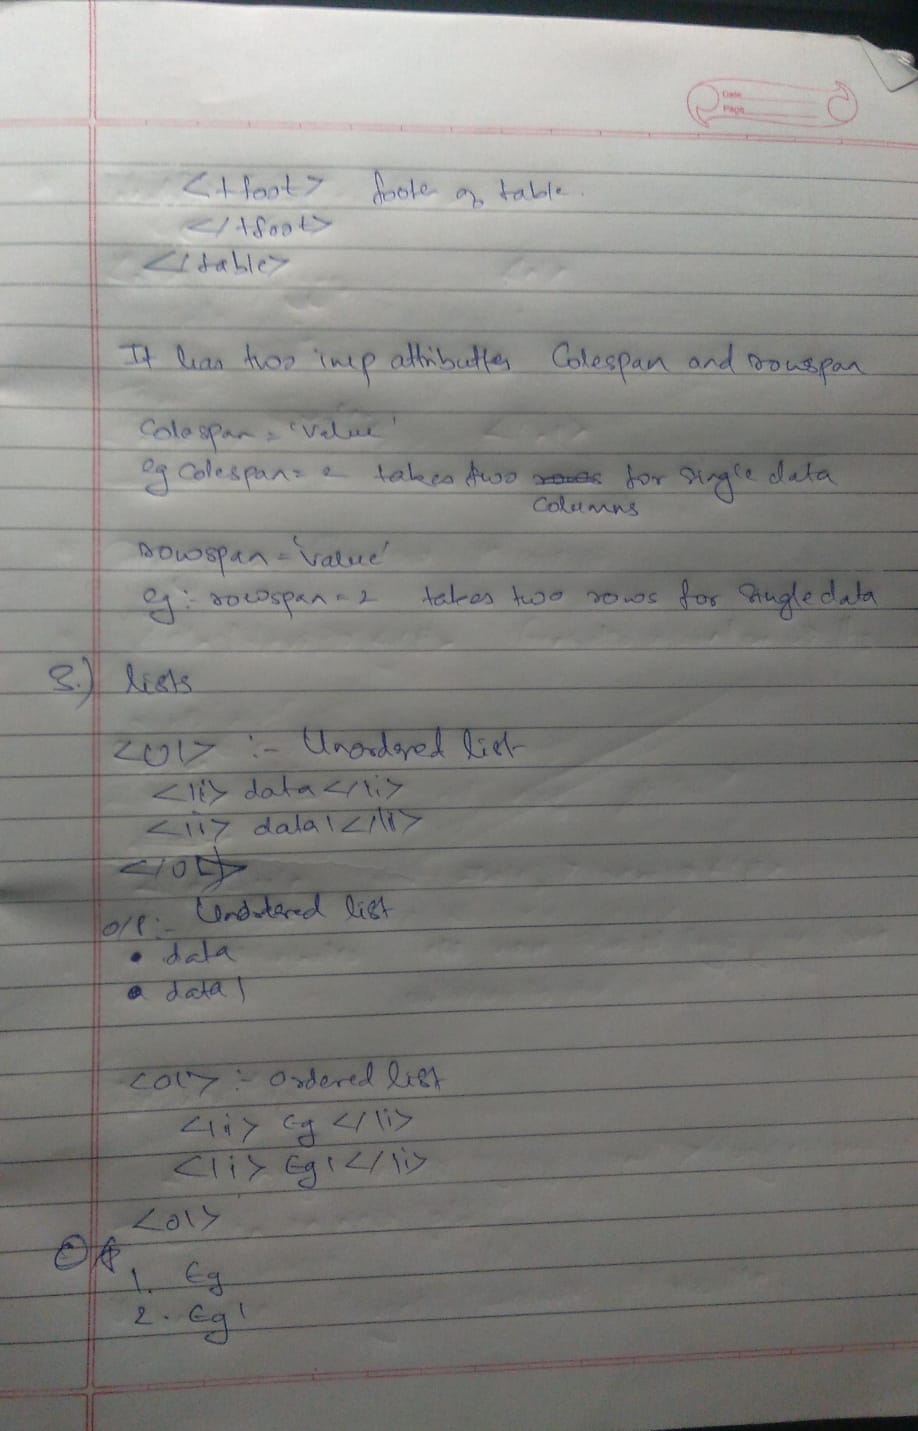 Date
Page
<tfoot> footer of table.
</tfoot>
</table>
It has two imp attributtes Colespan and rowspan
Colespan = 'value'
eg Colespan= 2 takes two rows for single data
Columns
rowspan = 'value'
eg :- rowspan = 2 takes two rows for single data
lists
:- Unordered list
<li> data </li>
<li> data1 </li>
O/P :- Unordered list
• data
• data1
<ol> :- ordered list
<li> Eg </li>
<li> Eg1 </li>
<ol>
1. Eg
2. Eg1